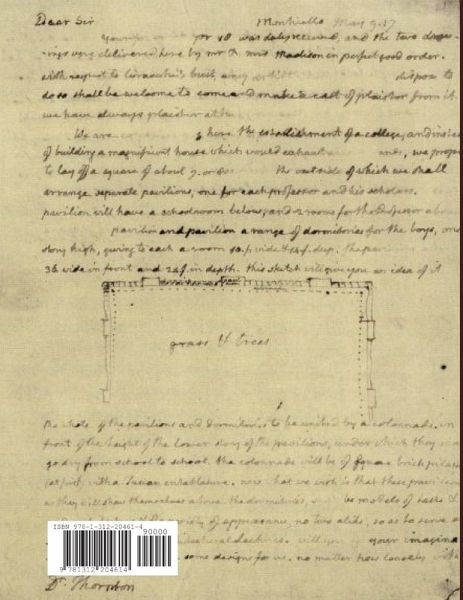 Dear Sir Monticello May 9. 17
Your favor of Apr 18 was duly received, and the two draw-
-ings very delivered here by mr & mrs Madison in perfect good order.
with respect to Ceracchi's bust, any dispose to
do so shall be welcome to come and make a cast of plaister from it.
we have always plaister at
We are here the establishment of a college, and instead
of building a magnificent house which would exhaust and, we propose
to lay off a square of about 7. or the outside of which we shall
arrange separate pavilions, one for each professor and his scholars.
pavilion will have a schoolroom below, and 2 rooms for the Professor above
pavilion and pavilion a range of dormitories for the boys, one
story high, giving to each a room 10. f. wide & 14. f. deep. the pavilions
36 wide in front and 24. f. in depth. this sketch will give you an idea of it
grass & trees
the whole of the pavilions and dormitories to be united by a colonnade in
front of the height of the lower story of the pavilions, under which they may
go dry from school to school. the colonnade will be of square brick pilasters
(at first) with a Tuscan entablature. now what we wish is that these pavilions
as they will shew themselves above the dormitories, be models of taste &
variety of appearance, no two alike, so as to serve as
lectures. will you your imagina
some designs for us. no matter how loosely with
ISBN 978-1-312-20461-4
90000
9 781312 204614
Dr. Thornton